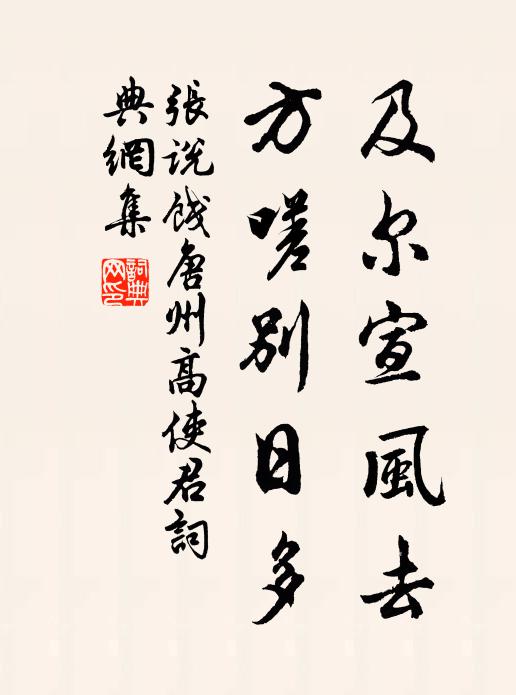 及尔宣風去
方嗟別日多
張說餞唐州高使君詞
典網集
詞典
网印